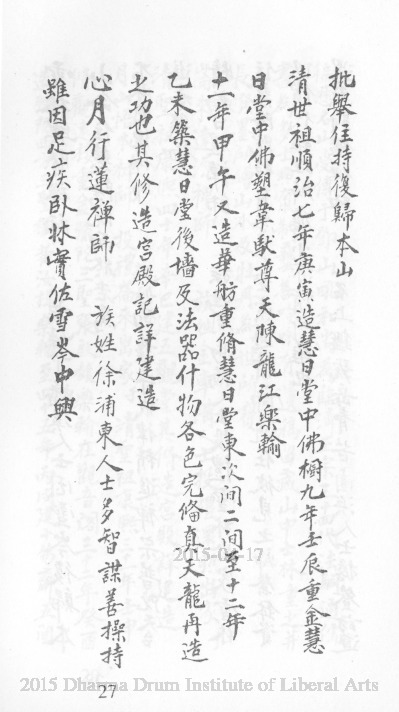 批舉住持復歸本山
清世祖順治七年庚寅造慧日堂中佛櫥九年壬辰重金慧
日堂中佛塑韋馱尊天陳龍江樂輸
十一年甲午又造華舫重脩慧日堂東次间二间至十二年
乙未築慧日堂後墻及法器什物各色完俻真天龍再造
之功也其修造宮殿記詳建造
心月行蓮禅師 族姓徐浦東人士多智謀善操持
雖因足疾卧牀實佐雪岑中興
2015-04-17
2015 Dharma Drum Institute of Liberal Arts
27